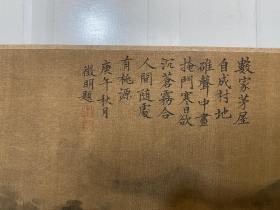 數家茅屋
自成村地
碓聲中晝
掩門寒日欲
沉蒼霧合
人間随處
有桃源
庚午秋月
徵明題